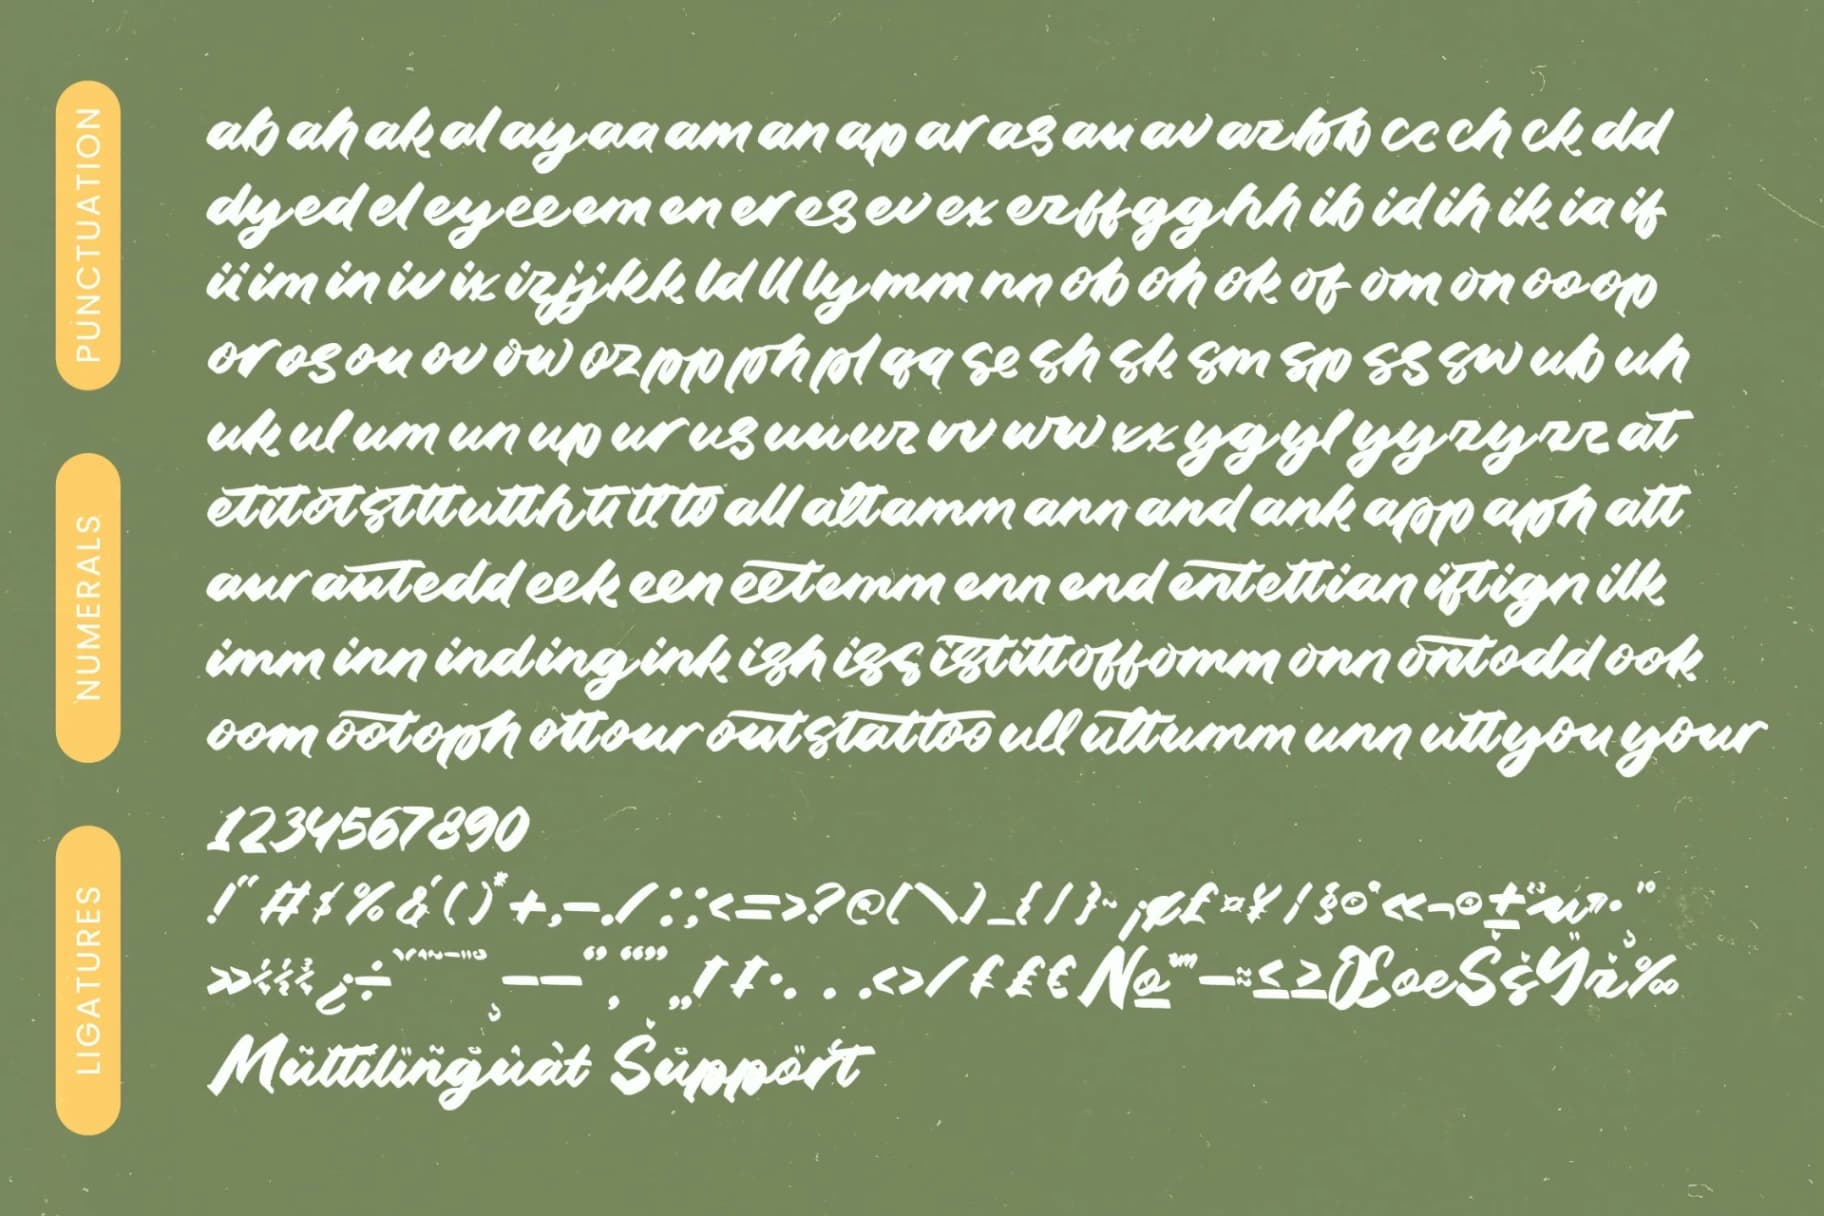 PUNCTUATION
NUMERALS
LIGATURES
ab ah ak al ay aa am an ap ar as au av az bb cc ch ck dd
dy ed el ey ee em en er es ev ex ez ff gg hh ib id ih ik ia if
ii im in iv ix iz jj kk ld ll ly mm nn ob oh ok of om on oo op
or os ou ov ow oz pp ph pl qq se sh sk sm sp ss sw ub uh
uk ul um un up ur us uu uz vv ww xx yg yl yy zy zz at
et it ot st tt ut th ti tl to all alt amm ann and ank app aph att
aur aut edd eek een eet emm enn end ent ett ian ift ign ilk
imm inn ind ing ink ish iss ist itt off omm onn ont odd ook
oom oot oph ott our out st att too ull ult umm unn utt you your
1234567890
!" # $ % & ' ( ) * + , - . / : ; < = > ? @ [ \ ] _ { | } ~ ¡ ¢ £ ¤ ¥ ¦ § © ª « ¬ ® ± µ ¶ ·
» ¿ ÷ — “ ” „ † ‡ • < > ⁄ £ € № ™ − ≈ ≤ ≥ Œ œ Š š Ÿ ž ‰